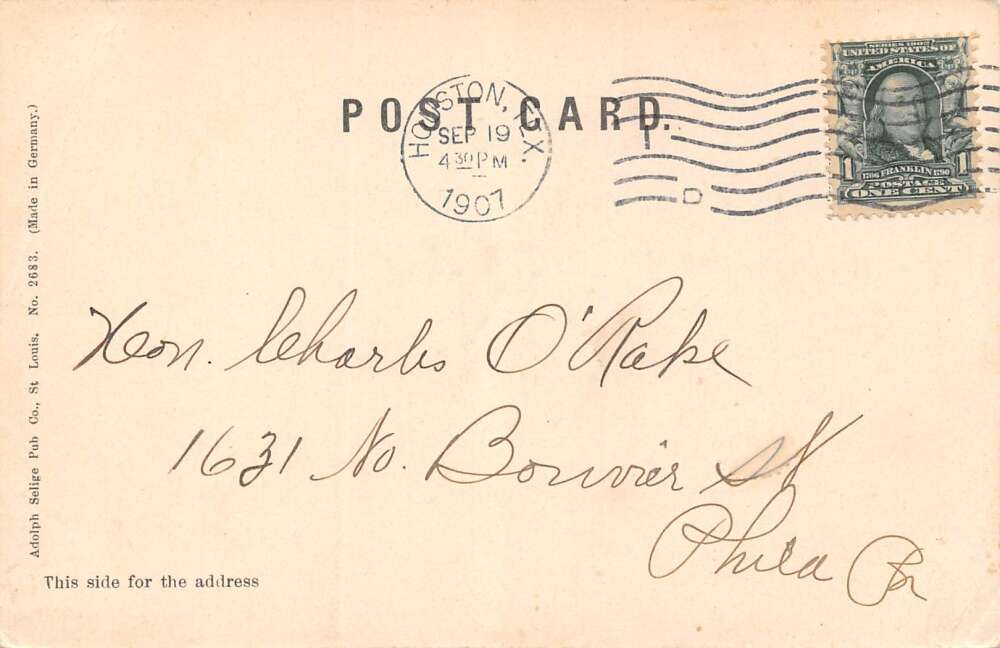 POST CARD.
HOUSTON, TEX.
SEP 19
4 30 PM
1907
D
SERIES 1902
UNITED STATES OF
AMERICA
1 1
1706 FRANKLIN 1790
POSTAGE
ONE CENT
Hon. Charles O'Rake
1631 No. Bouvier St
Phila Pa
Adolph Selige Pub Co., St Louis. No. 2683. (Made in Germany.)
This side for the address